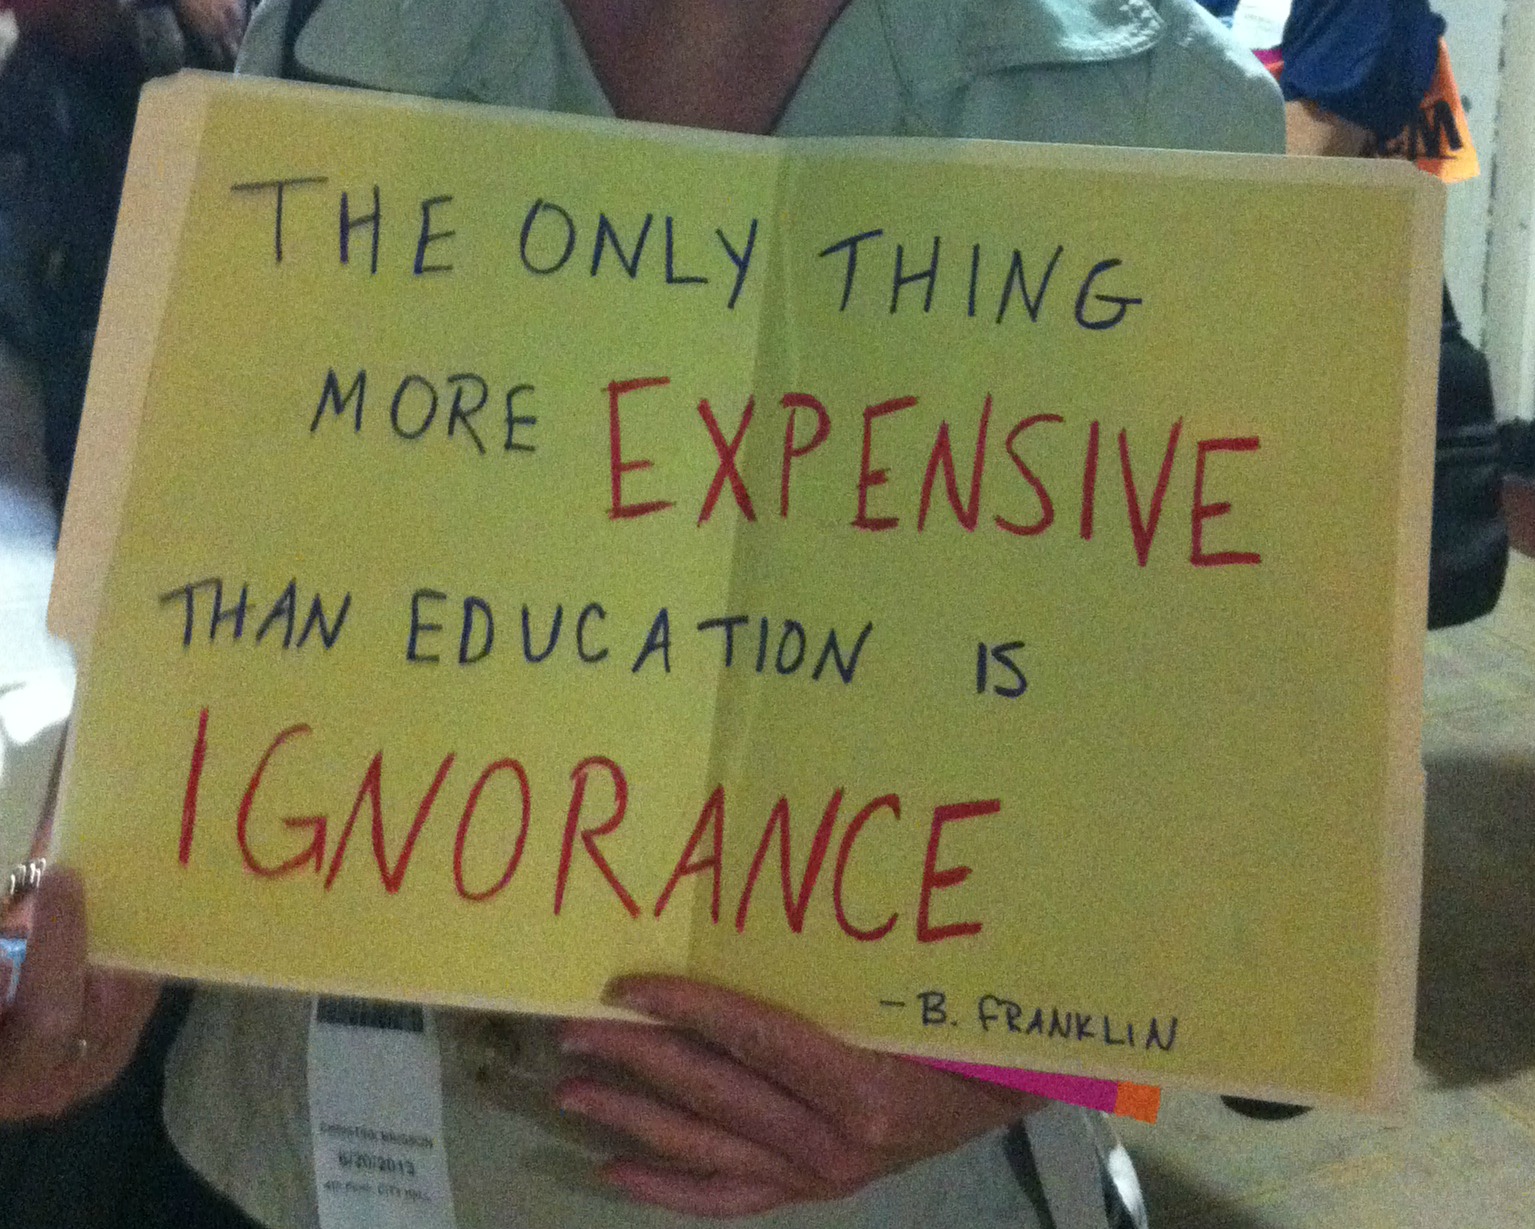 THE ONLY THING
MORE EXPENSIVE
THAN EDUCATION IS
IGNORANCE
- B. FRANKLIN
6/20/2013
CITY HALL